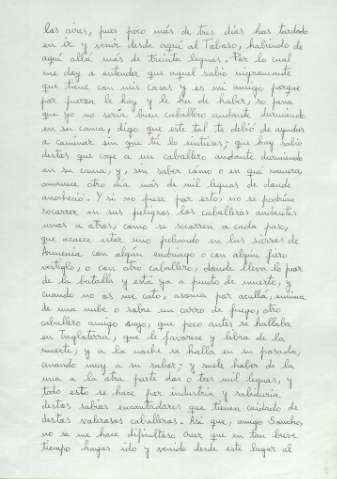 los aires, pues poco más de tres días has tardado
en ir y venir desde aquí al Toboso, habiendo de
aquí allá más de treinta leguas. Por lo cual
me doy a entender que aquel sabio nigromante
que tiene con mis cosas y es mi amigo porque
por fuerza le hay y le ha de haber, so pena
que yo no sería buen caballero andante
en su cama, digo que este tal te debió de ayudar
a caminar sin que tú lo sintieses; que hay sabio
destos que coge a un caballero andante durmiendo
en su cama, y, sin saber cómo o en qué manera,
amanece otro día más de mil leguas de donde
anocheció. Y si no fuese por esto, no se podrían
socorrer en sus peligros los caballeros andantes
unos a otros, como se socorren a cada paso,
que acaece estar uno peleando en las sierras de
Armenia con algún endriago o con algún fiero
vestiglo, o con otro caballero, donde lleva lo peor
de la batalla y está ya a punto de muerte, y
cuando no os me cato, asoma por acullá, encima
de una nube o sobre un carro de fuego, otro
caballero amigo suyo, que poco antes se hallaba
en Inglaterra, que le favorece y libra de la
muerte, y a la noche se halla en su posada,
cenando muy a su sabor; y suele haber de la
una a la otra parte dos o tres mil leguas, y
todo esto se hace por industria y sabiduría
destos sabios encantadores que tienen cuidado de
destos valerosos caballeros. Así que, amigo Sancho,
no se me hace dificultoso creer que en tan breve
tiempo hayas ido y venido desde este lugar al